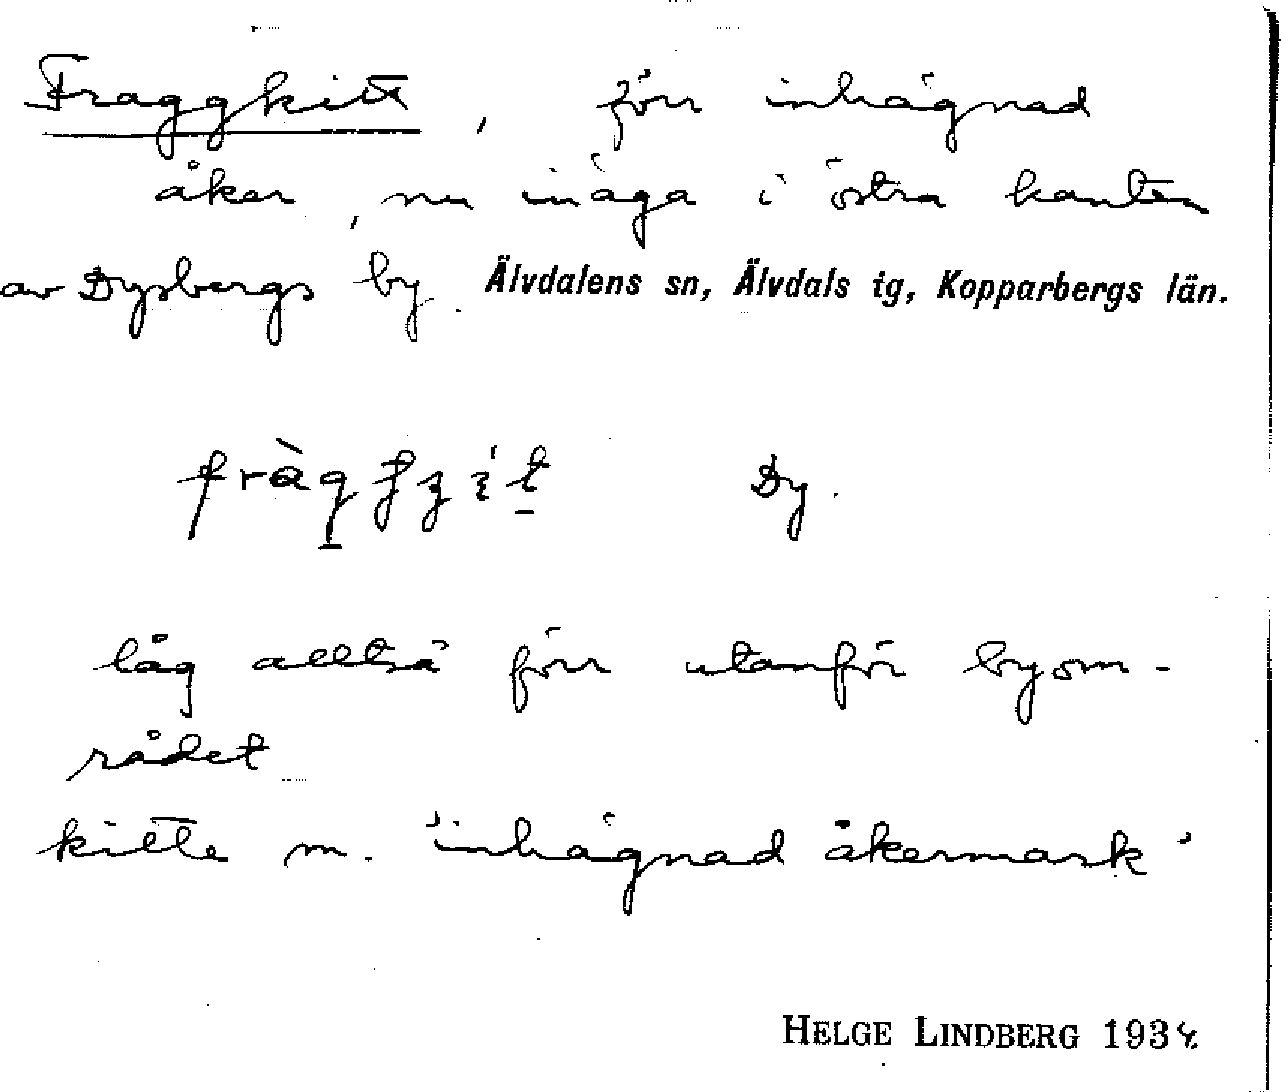 Fraggkitt, förr inhägnad
åker, nu inäga i östra kanten
av Dysbergs by. Älvdalens sn, Älvdals tg, Kopparbergs län.
Dy.
låg alltså förr utanför byom-
rådet
kitte m. 'inhägnad åkermark'
HELGE LINDBERG 1934